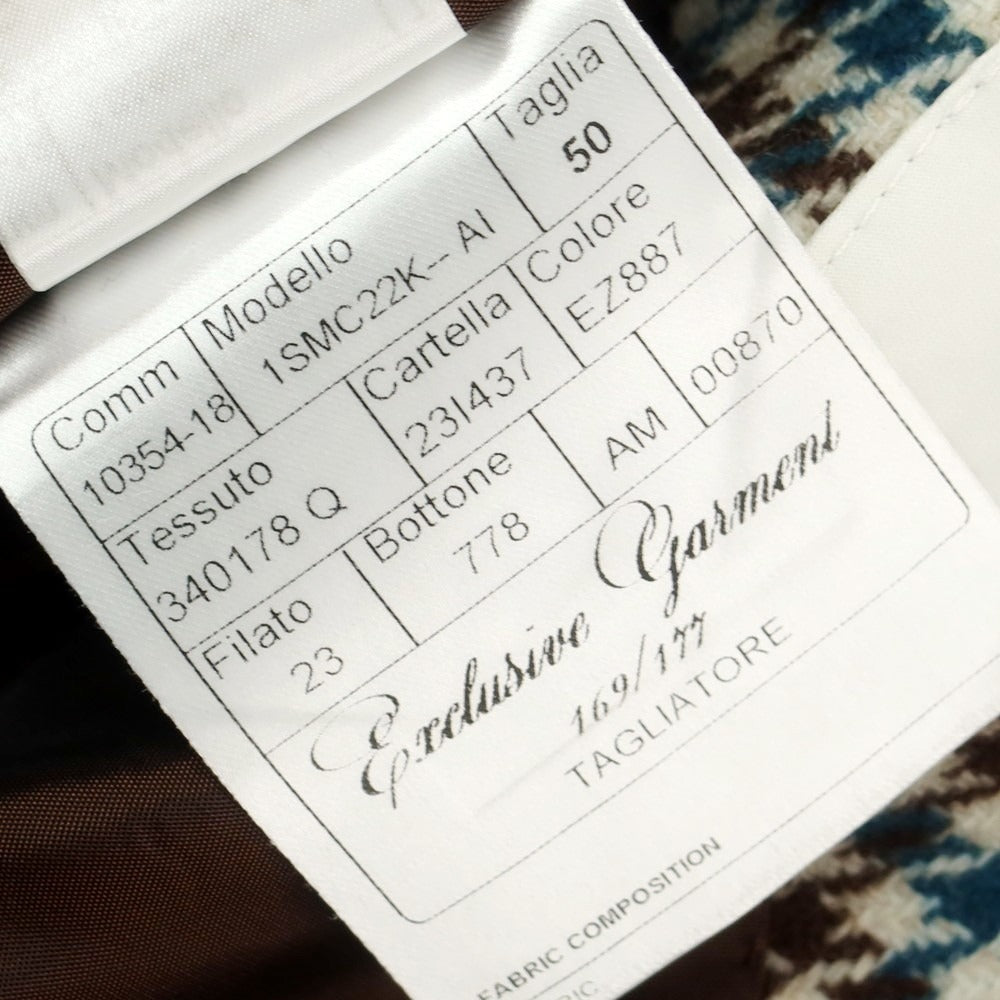 Comm Modello Taglia
10354-18 1SMC22K-- AI 50
Tessuto Cartella Colore
340178 Q 23I437 EZ887
Filato Bottone
23 778 AM 00870
Exclusive Garment
169/177
TAGLIATORE
FABRIC COMPOSITION